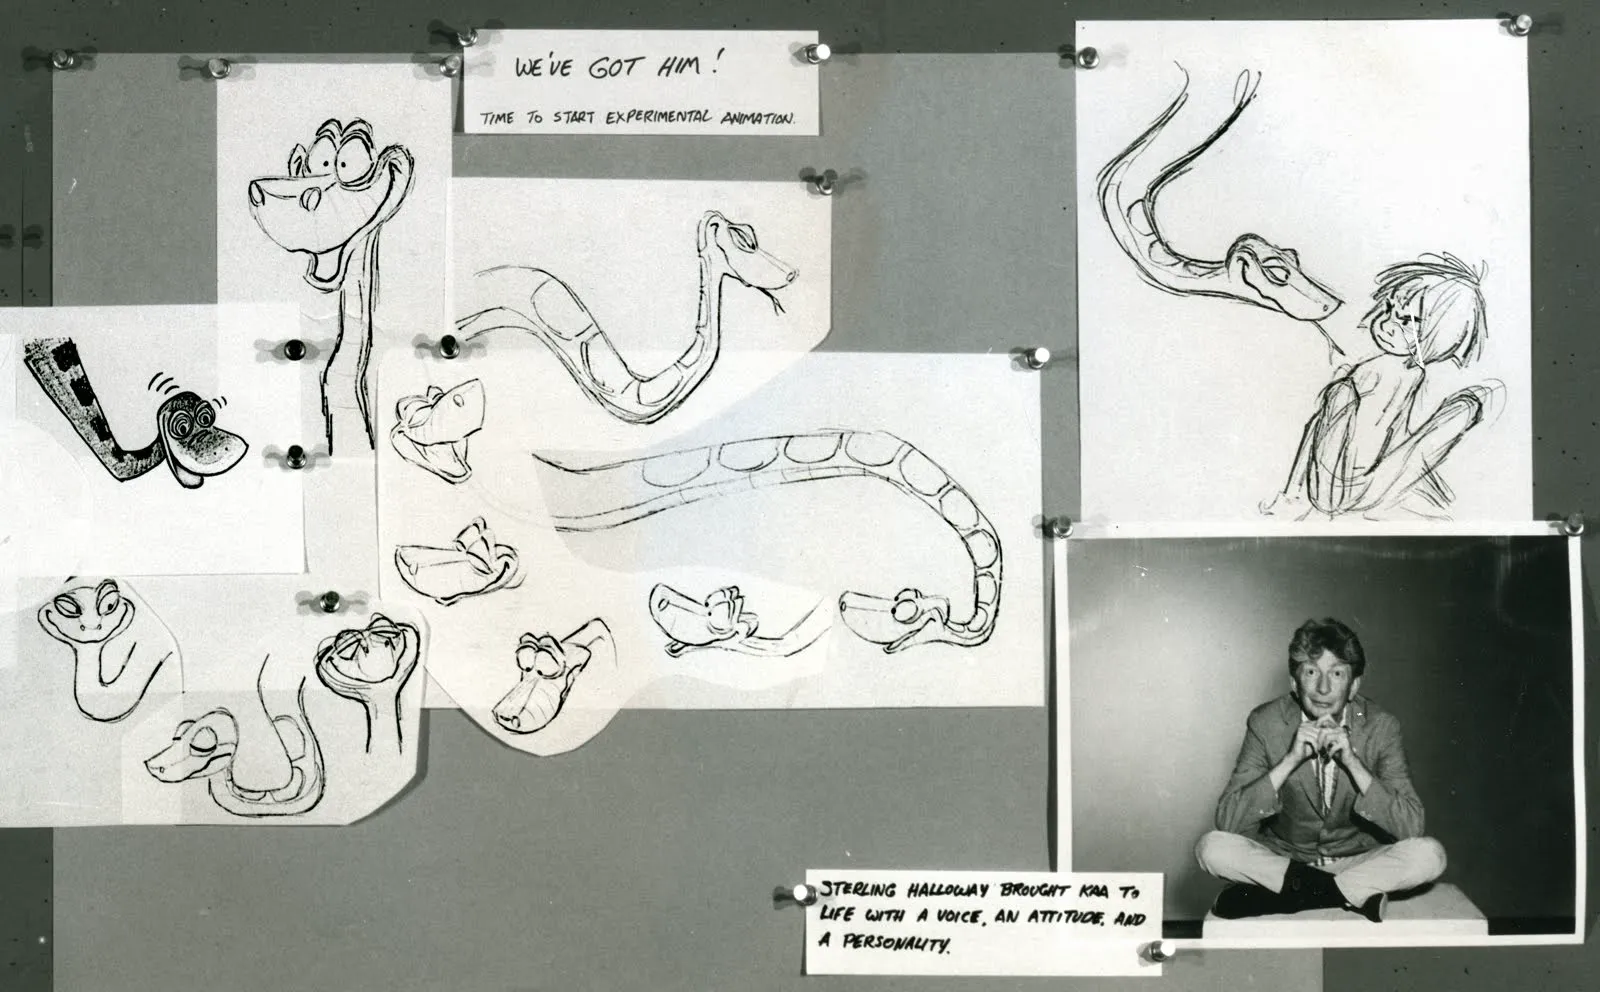 WE'VE GOT HIM!
TIME TO START EXPERIMENTAL ANIMATION.
STERLING HALLOWAY BROUGHT KAA TO
LIFE WITH A VOICE, AN ATTITUDE, AND
A PERSONALITY.